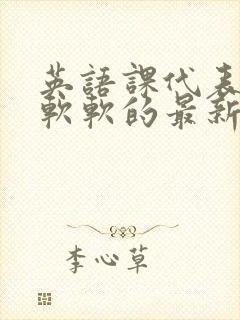 英語課代表
軟軟的最新
李心草